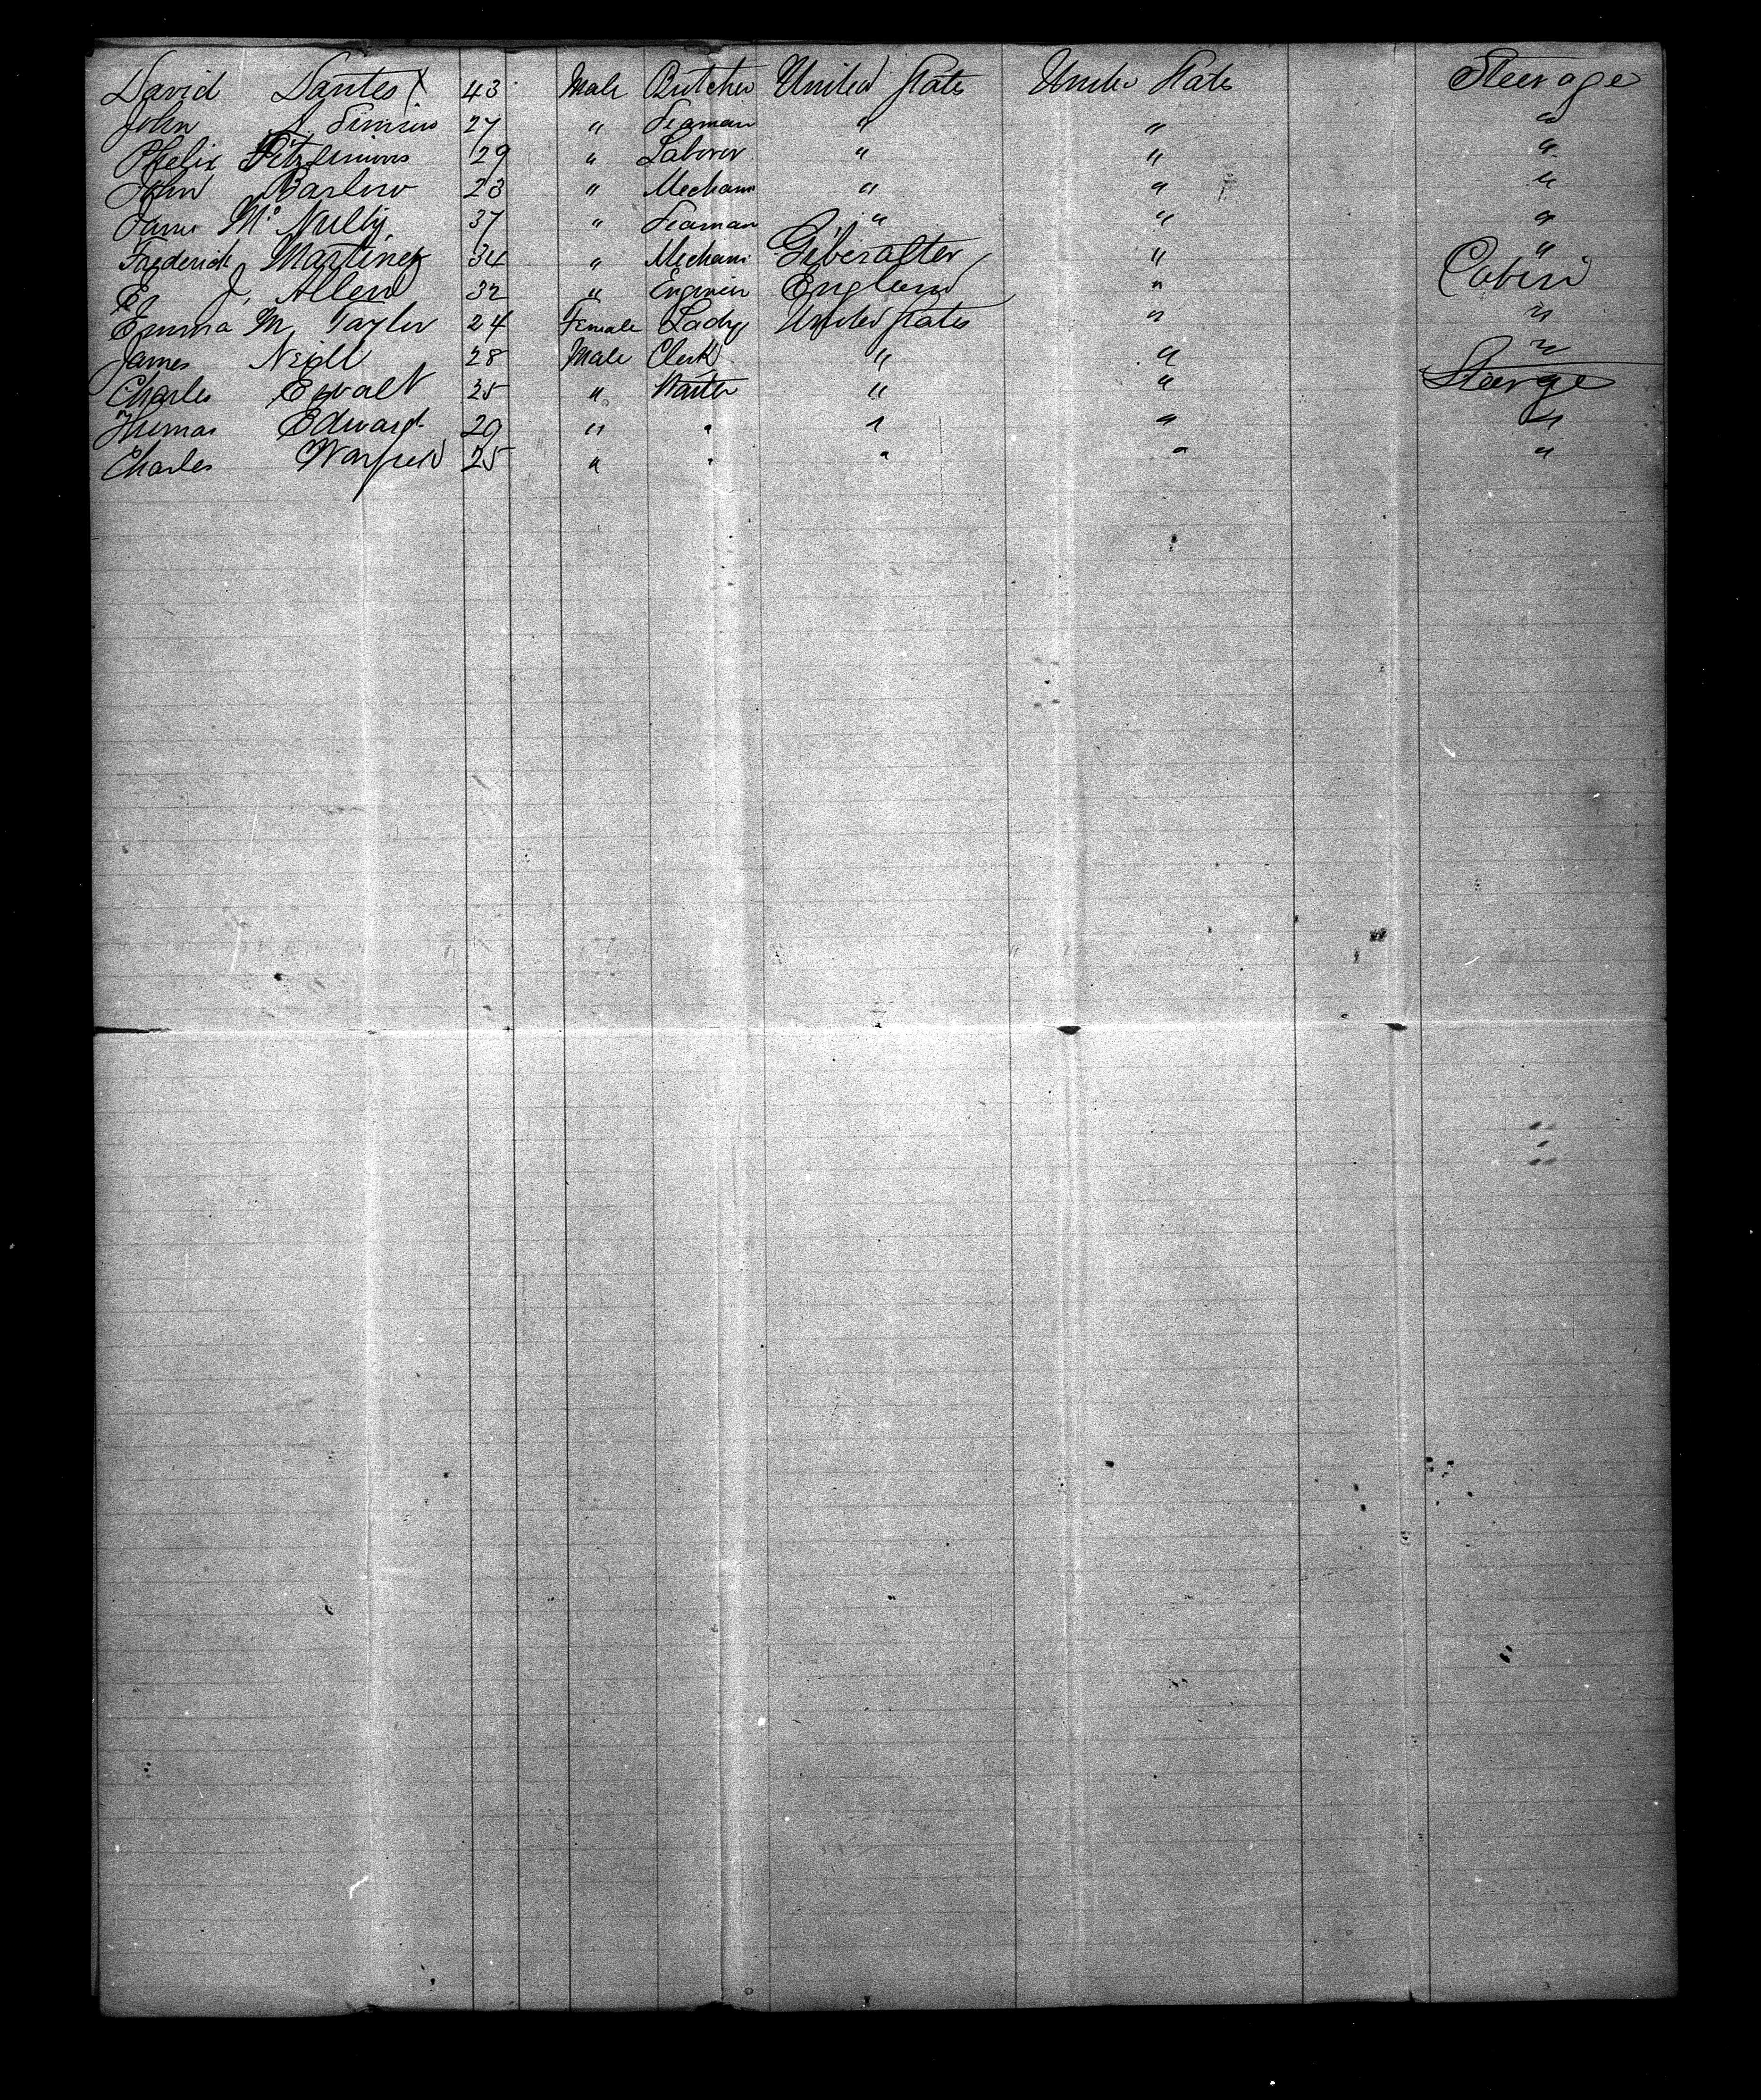 David Dantes X 43 Male Butcher United States United States Steerage
John A. Simins 27 " Seaman " " "
Phelix Fitzsimons 29 " Laborer " " "
John Barlow 23 " Mechani " " "
James Mc Nully 37 " Seaman " " "
Frederick Martinez 34 " Mechani Giberalter " "
J. Allen 32 " Engineer England " Cabin
Emma M. Taylor 24 Female Lady United States " "
James Neall 28 Male Clerk " " "
Charles Ewalt 35 " Waiter " " Steerge
Thomas Edward 29 " " " " "
Charles Warfield 25 " " " " "